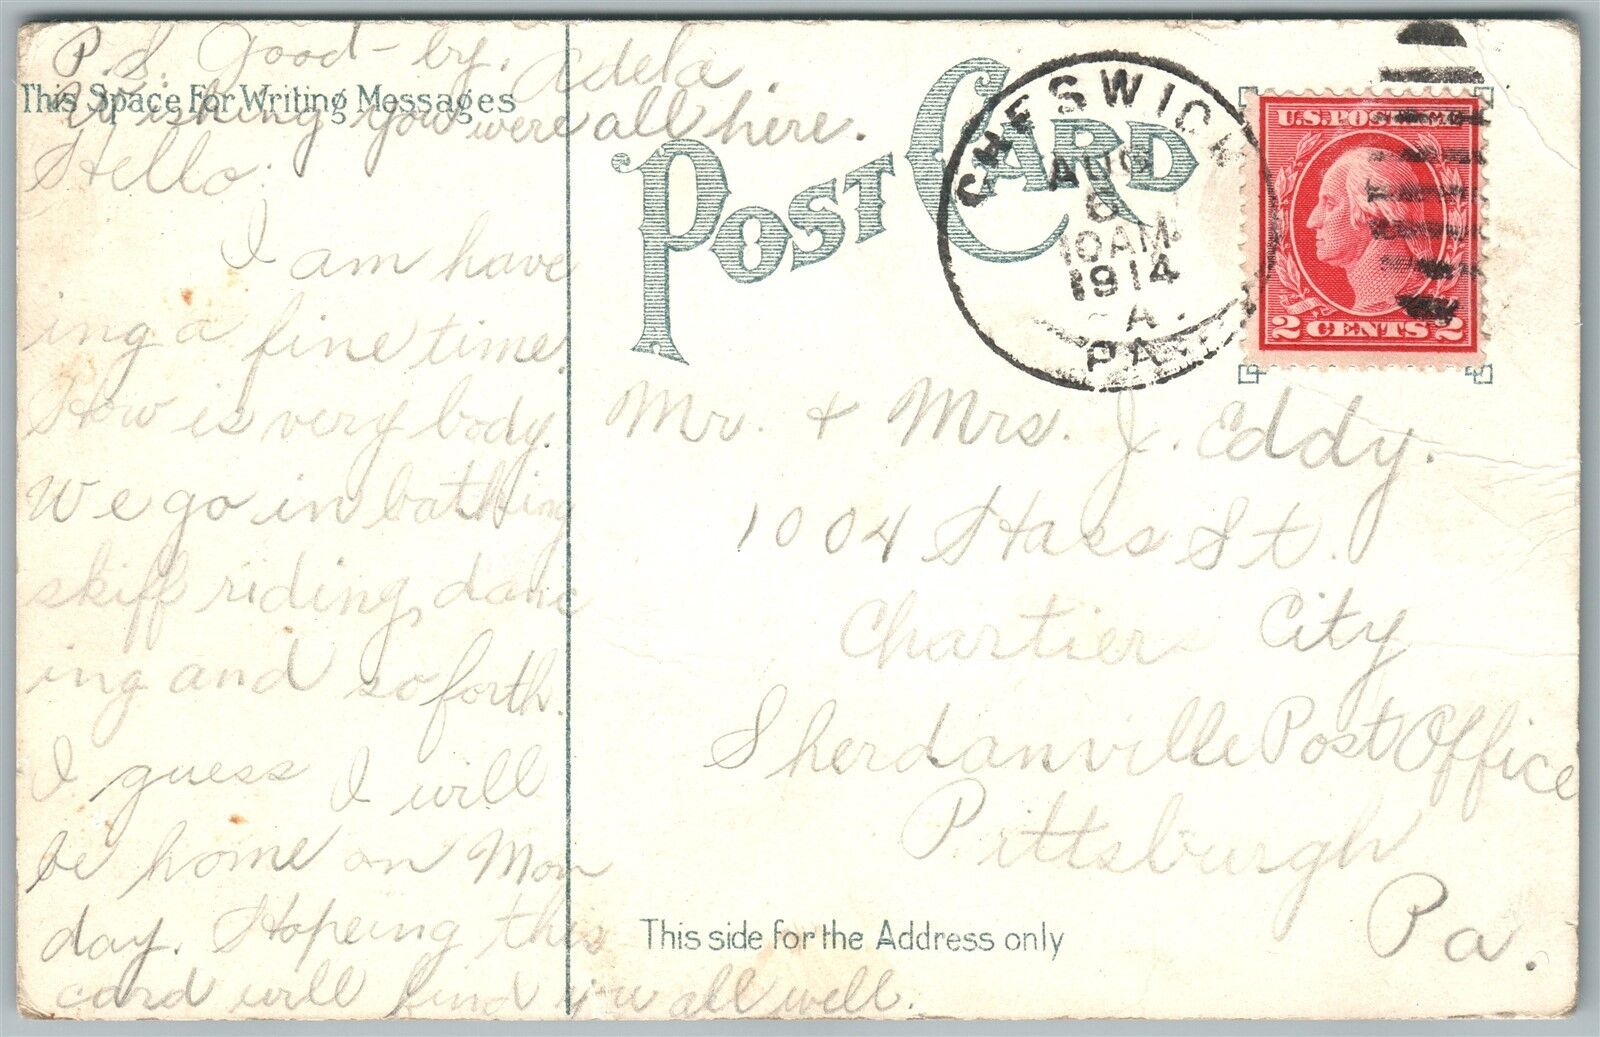 P.S. Good-by. Adela.
This Space For Writing Messages
Wishing you were all here.
Hello.
I am hav
ing a fine time.
How is very body.
We go in bathing
skiff riding, danc
ing and so forth.
I guess I will
be home on Mon
day. Hopeing this
card will find you all well.
POST CARD
CHESWICK
AUG
8
10 AM
1914
PA.
U.S. POSTAGE
2 CENTS 2
Mr. & Mrs. J. Eddy.
1004 Hass St.
Chartiers City
Sherdanville Post Office
Pittsburgh
Pa.
This side for the Address only